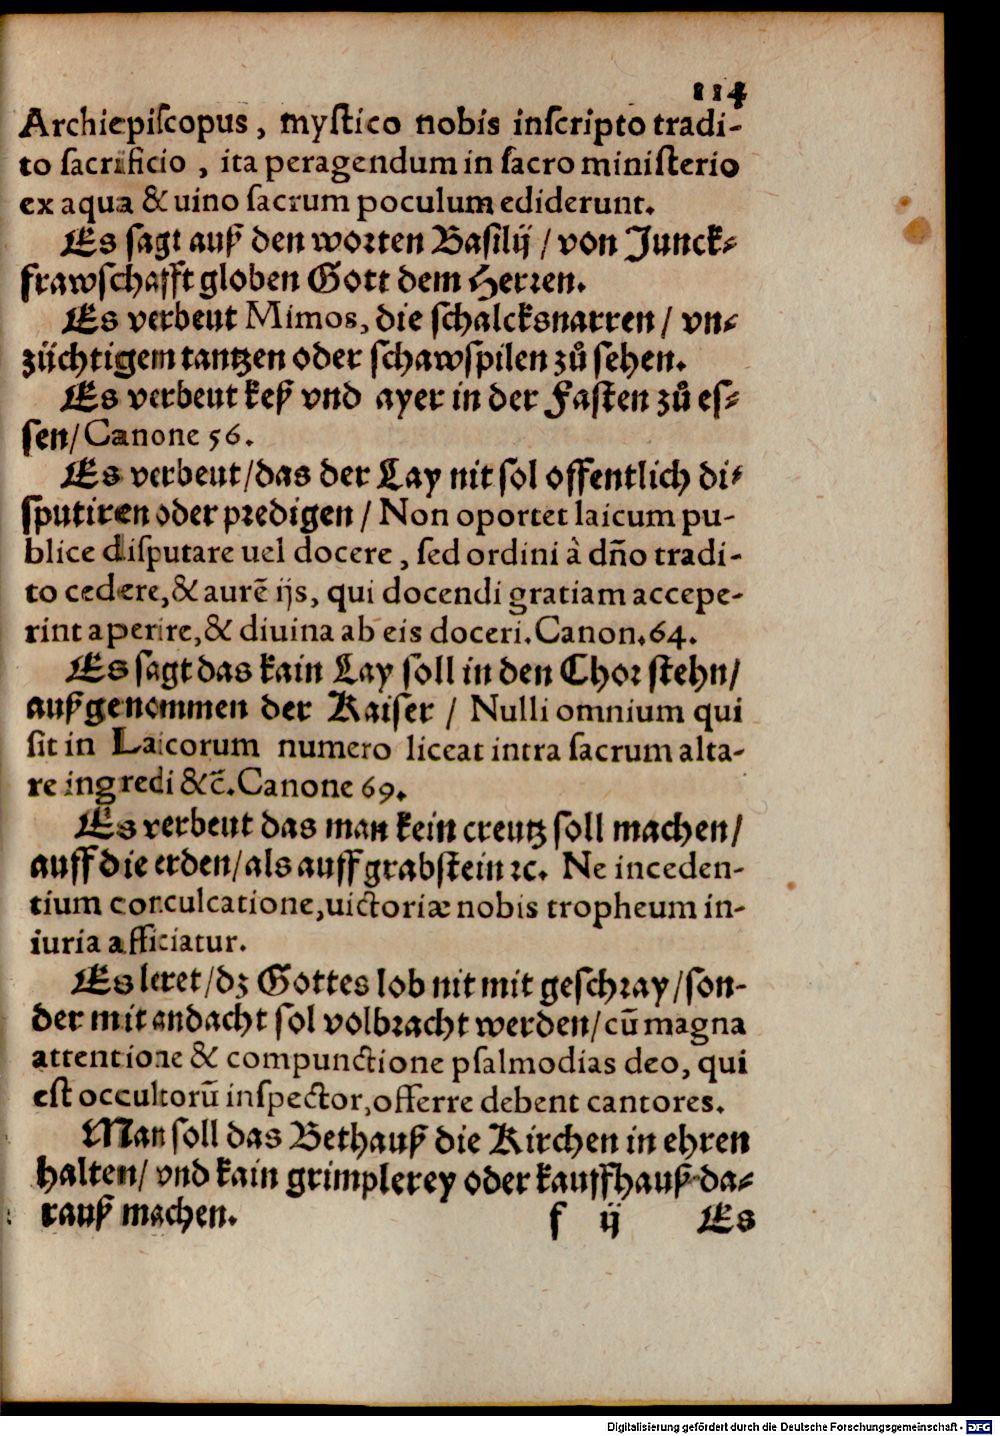 114
Archiepiſcopus, myſtico nobis inſcripto tradi-
to ſacrificio, ita peragendum in ſacro miniſterio
ex aqua & uino ſacrum poculum ediderunt.
Es ſagt auß den worten Baſilij / von Junck-
frawſchafft globen Gott dem Herren.
Es verbeut Mimos, die ſchalcksnarren / vn-
züchtigem tantzen oder ſchawſpilen zů ſehen.
Es verbeut keß vnd ayer in der Faſten zů eſ-
ſen / Canone 56.
Es verbeut / das der Lay nit ſol offentlich di-
ſputiren oder predigen / Non oportet laicum pu-
blice diſputare uel docere, ſed ordini à dño tradi-
to cedere, & aurē ijs, qui docendi gratiam accepe-
rint aperire, & diuina ab eis doceri. Canon. 64.
Es ſagt das kain Lay ſoll in den Chor ſtehn /
außgenommen der Kaiſer / Nulli omnium qui
ſit in Laicorum numero liceat intra ſacrum alta-
re ingredi &c̄. Canone 69.
Es verbeut das man kein creutz ſoll machen /
auff die erden / als auff grabſtein ꝛc. Ne inceden-
tium conculcatione, uictoriæ nobis tropheum in-
iuria afficiatur.
Es leret / dz Gottes lob nit mit geſchray / ſon-
der mit andacht ſol volbracht werden / cū magna
attentione & compunctione pſalmodias deo, qui
eſt occultorū inſpector, offerre debent cantores.
Man ſoll das Bethauß die Kirchen in ehren
halten / vnd kain grimplerey oder kauffhauß da-
rauß machen.
f ij Es
Digitalisierung gefördert durch die Deutsche Forschungsgemeinschaft - DFG